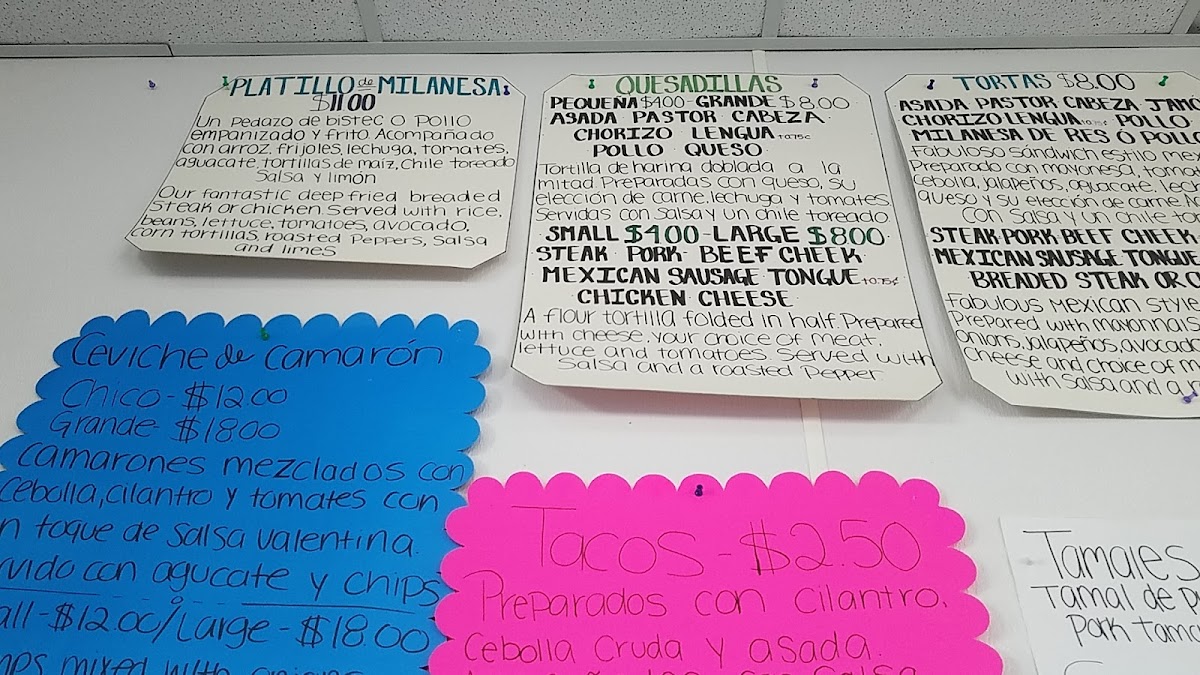 PLATILLO de MILANESA
$11.00
Un pedazo de bistec o pollo
empanizado y frito. Acompañado
con arroz, frijoles, lechuga, tomates,
aguacate, tortillas de maíz, chile toreado
Salsa y limón
Our fantastic deep fried breaded
steak or chicken. Served with rice,
beans, lettuce, tomatoes, avocado,
corn tortillas, roasted peppers, salsa
and limes
QUESADILLAS
PEQUEÑA $4.00 - GRANDE $8.00
ASADA PASTOR CABEZA
CHORIZO LENGUA +0.75¢
POLLO QUESO
Tortilla de harina doblada a la
mitad. Preparadas con queso, su
elección de carne, lechuga y tomates.
Servidas con salsa y un chile toreado
SMALL $4.00 - LARGE $8.00
STEAK PORK BEEF CHEEK
MEXICAN SAUSAGE TONGUE +0.75¢
CHICKEN CHEESE
A flour tortilla folded in half. Prepared
with cheese, your choice of meat,
lettuce and tomatoes. Served with
Salsa and a roasted Pepper
TORTAS $8.00
ASADA PASTOR CABEZA
CHORIZO LENGUA POLLO
MILANESA DE RES Ó POLL
Fabuloso sándwich estilo
Preparado con mayonesa,
cebolla, jalapeños, aguacate,
queso y su elección de carne.
con salsa y un chile
STEAK PORK BEEF CHEEK
MEXICAN SAUSAGE TONGUE
BREADED STEAK OR
Fabulous Mexican Style
Prepared with
onions, jalapeños,
cheese and choice of
with salsa and a
Ceviche de Camarón
Chico - $12.00
Grande - $18.00
Camarones mezclados con
cebolla, cilantro y tomates con
toque de salsa valentina.
con agucate y chips
- $12.00/Large - $18.00
mixed with
Tacos - $2.50
Preparados con cilantro,
cebolla cruda y asada.
Salsa
Tamales
Tamal de
Pork